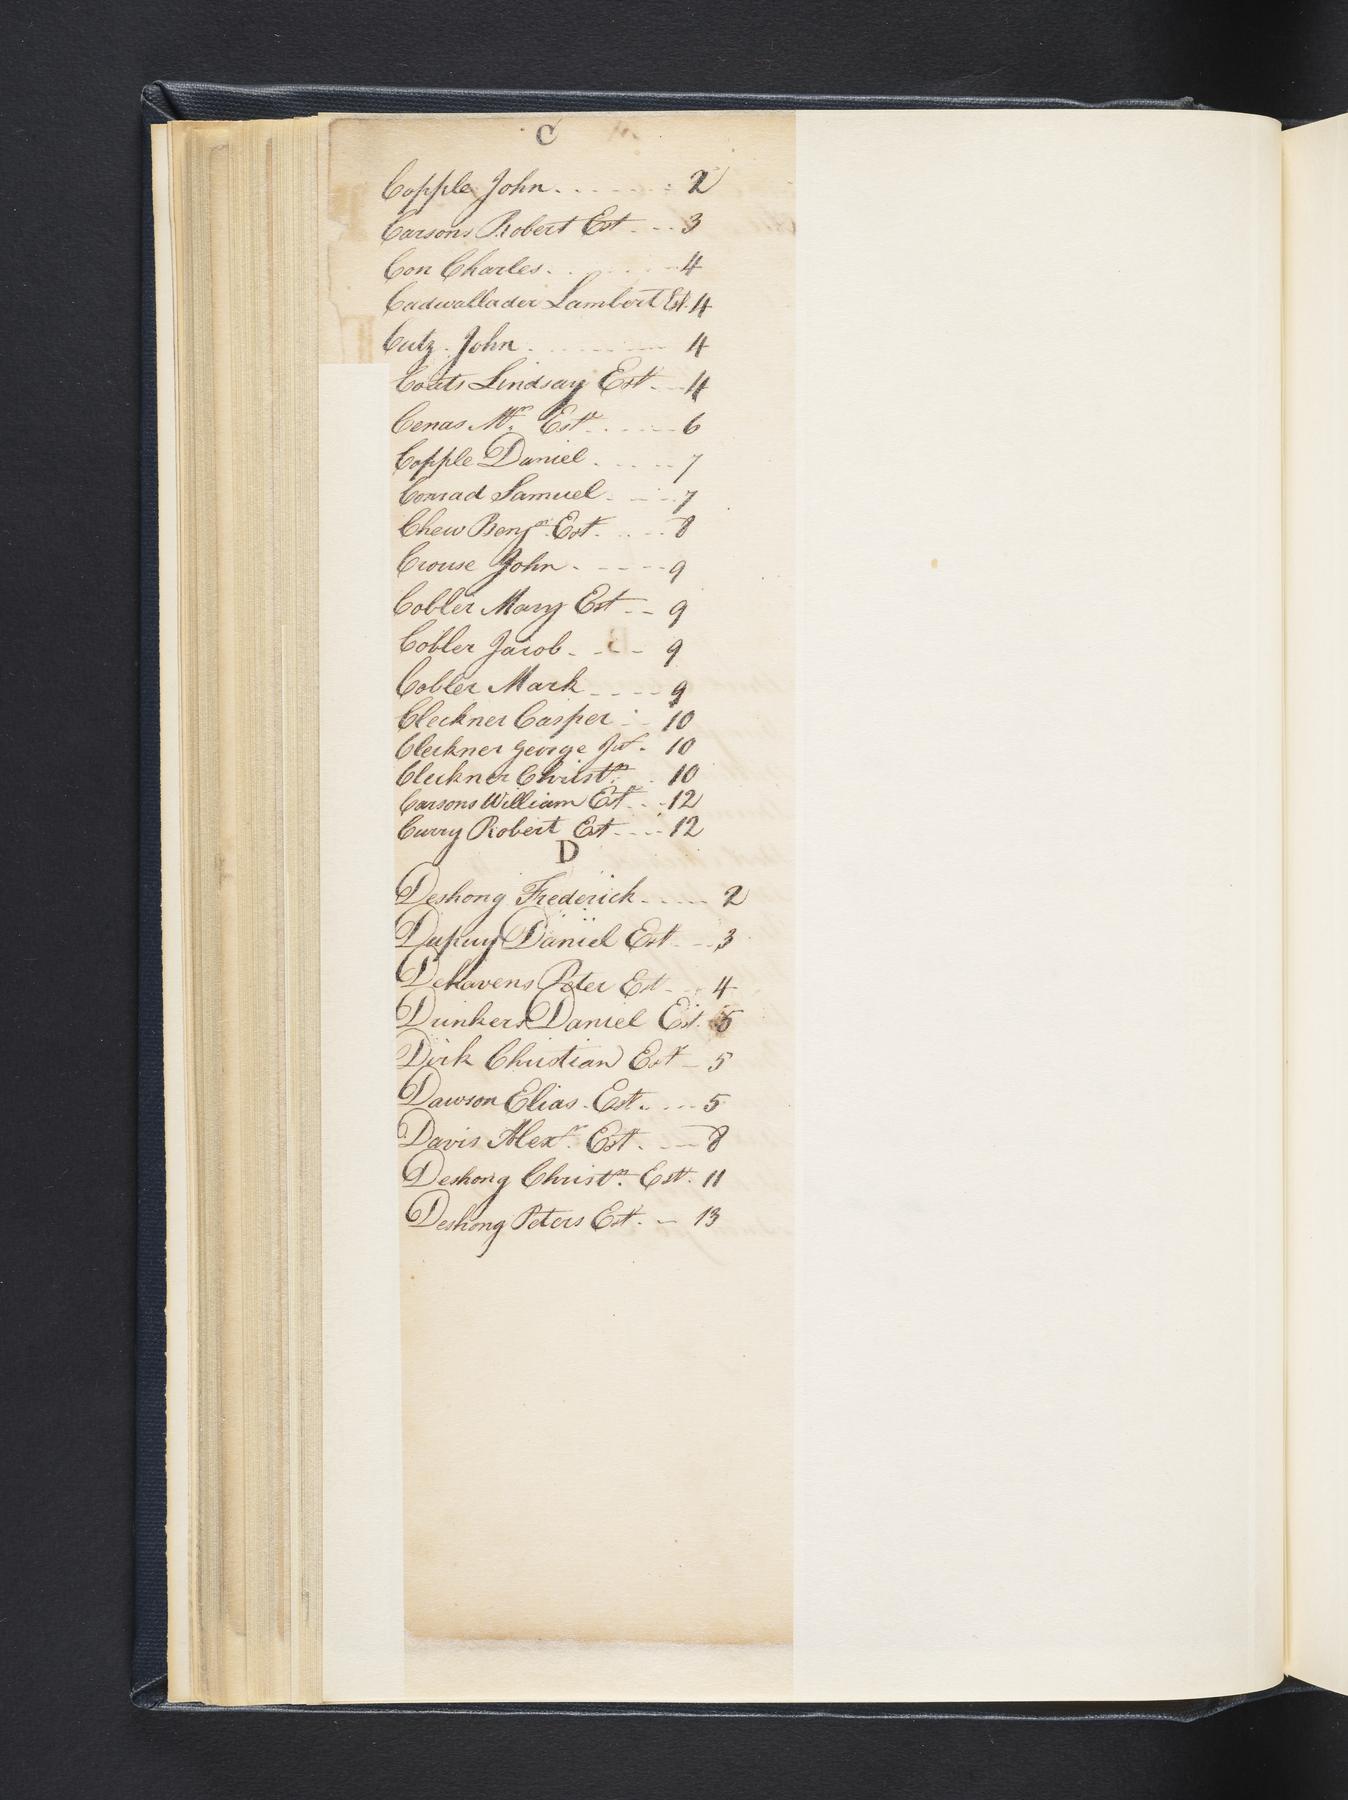 C
Copple John . . . . . . : 2
Carsons Robert Est - - - 3
Con Charles . . . . - - 4
Cadwallader Lambert Est. 4
Cutz. John . . . . . . . 4
Coats Lindsay Est - - - 4
Cenas Mr. Est . . . . - - 6
Copple Daniel . . . . . 7
Conrad Samuel - - - - 7
Chew Benjn. Est. . . - - 8
Crouse John - - - - - 9
Cobler Mary Est - - 9
Cobler Jacob - - - - 9
Cobler Mark - - - - 9
Cleckner Casper - - 10
Cleckner George . 10
Cleckner Christn. . 10
Carsons William Est - - - 12
Curry Robert Est - - - - 12
D
Deshong Frederick - - - - - 2
Dupuy Daniel Est - - - 3
DeHavens Peter Est - - - 4
Drinkers Daniel Est. 5
Dirk Christian Est - 5
Dawson Elias. Est. . - - - 5
Davis Alexr. Est. - - - 8
Deshong Christn. Est. 11
Deshong Peters Est. - - 13